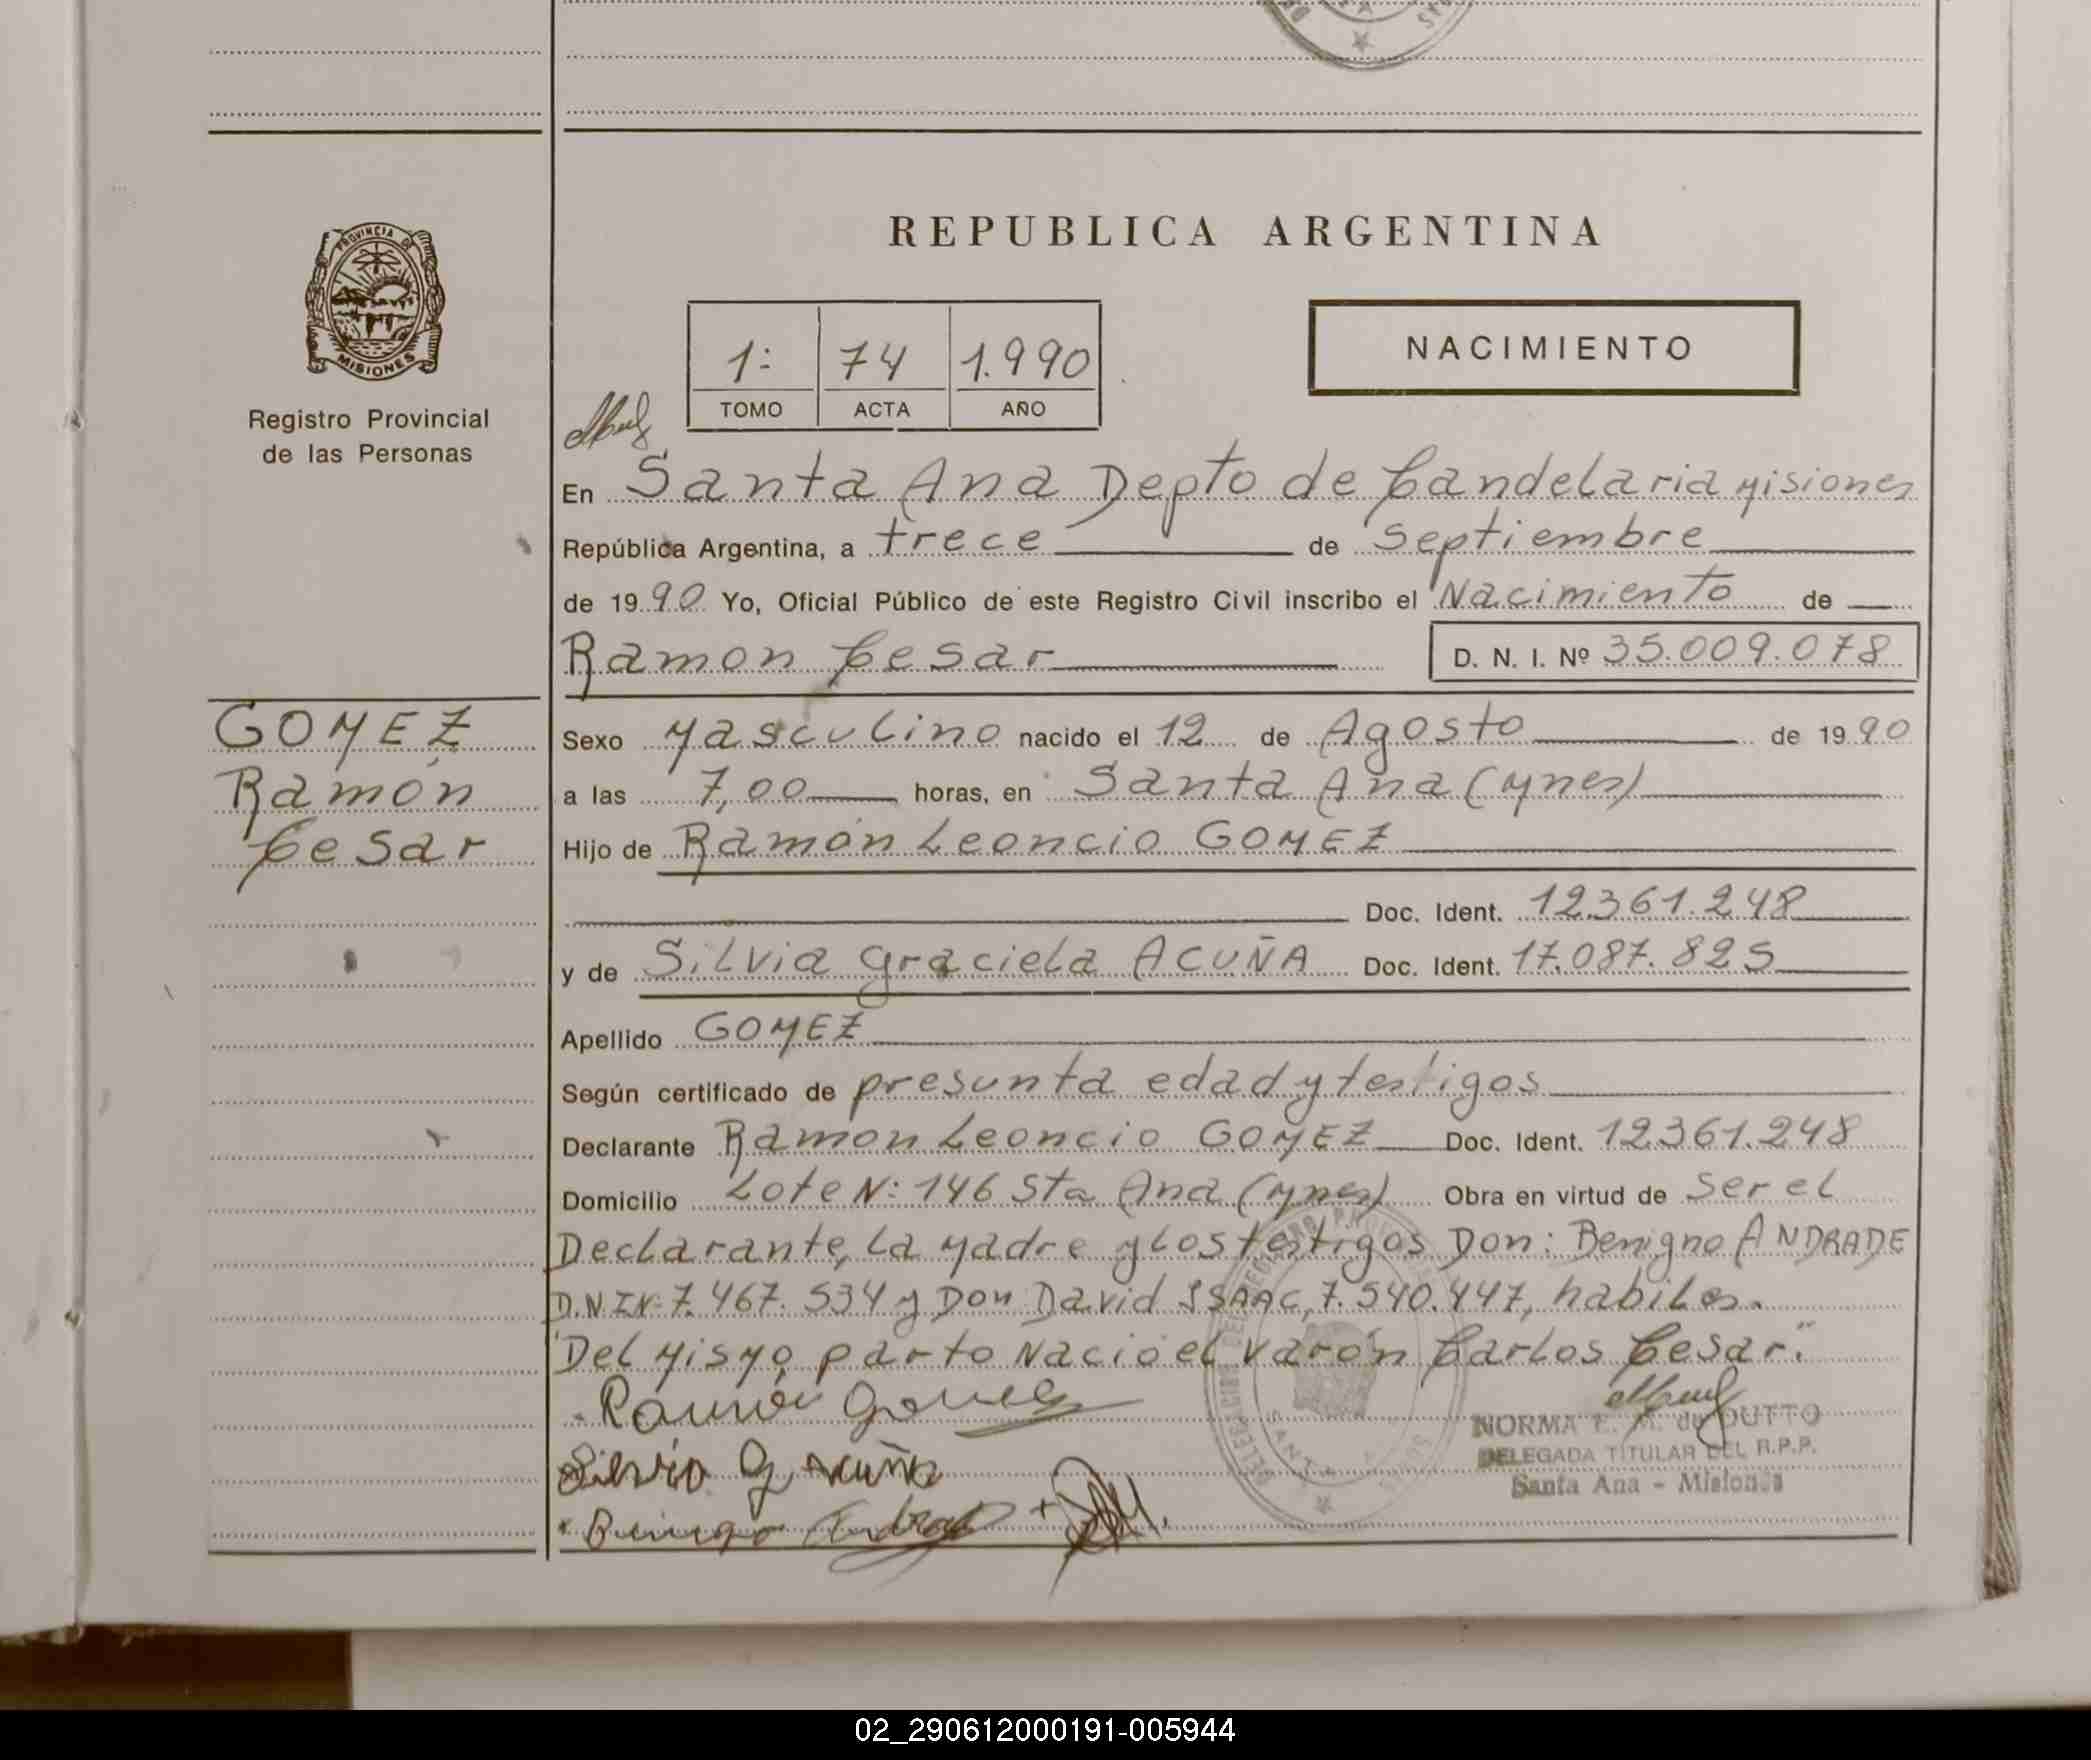 REPUBLICA ARGENTINA
PROVINCIA DE
MISIONES
Registro Provincial
de las Personas
1: 74 1.990
TOMO ACTA AÑO
NACIMIENTO
En Santa Ana Depto de Candelaria Misiones
República Argentina, a trece de Septiembre
de 1990 Yo, Oficial Público de este Registro Civil inscribo el Nacimiento de
Ramon Cesar D. N. I. Nº 35.009.078
GOMEZ
Ramón
Cesar
Sexo Masculino nacido el 12 de Agosto de 1990
a las 7,00 horas, en Santa Ana (Mnes)
Hijo de Ramón Leoncio GOMEZ
Doc. Ident. 12.361.248
y de Silvia Graciela ACUÑA Doc. Ident. 17.087.825
Apellido GOMEZ
Según certificado de presunta edad y testigos
Declarante Ramon Leoncio GOMEZ Doc. Ident. 12.361.248
Domicilio Lote N: 146 Sta Ana (Mnes) Obra en virtud de Ser el
Declarante, la Madre y los testigos Don: Benigno ANDRADE
D.N.I N: 7.467.534 y Don David ISAAC, 7.540.447, habiles.
Del Mismo parto Nació el varón Carlos Cesar."
Ramon Gomez
Silvia G Acuña
NORMA E. M. de DUTTO
DELEGADA TITULAR DEL R.P.P.
Santa Ana - Misiones
02_290612000191-005944